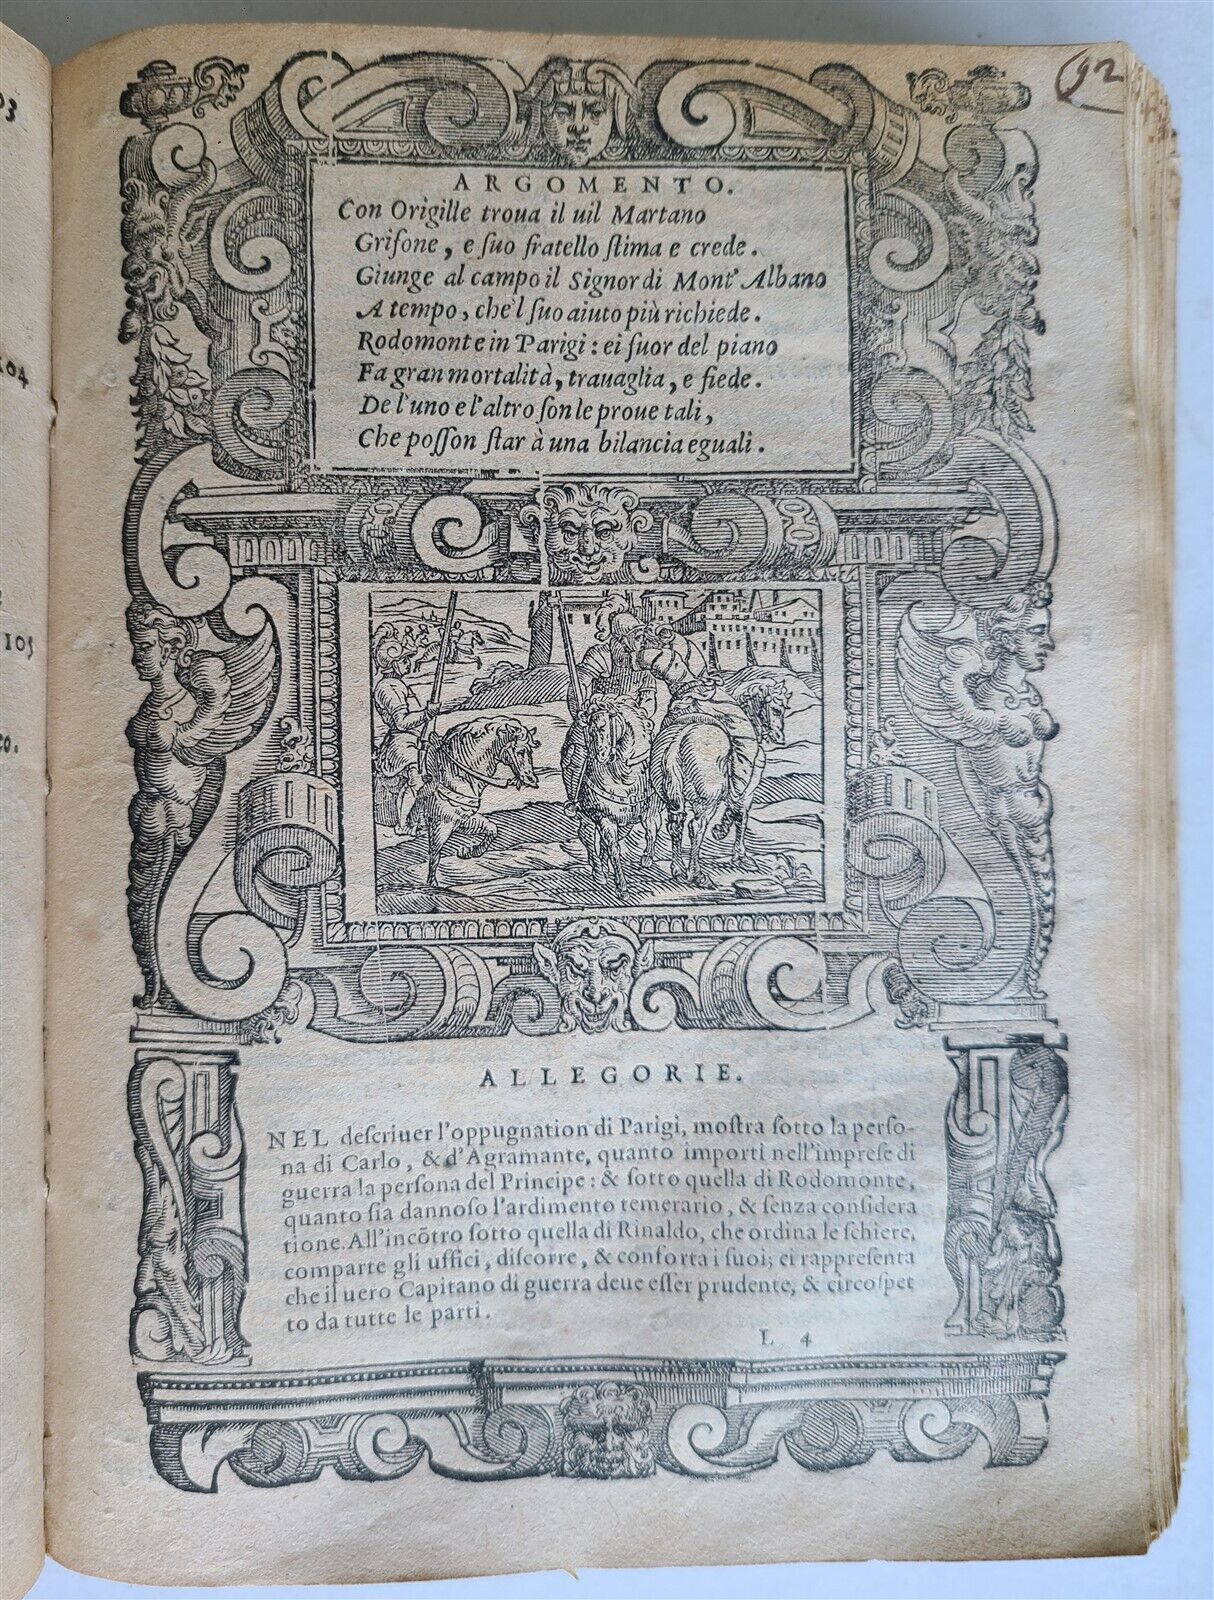 03
104
105
zo.
92
ARGOMENTO.
Con Origille troua il uil Martano
Grifone, e ſuo fratello ſtima e crede.
Giunge al campo il Signor di Mont' Albano
A tempo, che'l ſuo aiuto più richiede.
Rodomonte in Parigi: ei fuor del piano
Fa gran mortalità, trauaglia, e fiede.
De l'uno e l'altro ſon le proue tali,
Che poſſon ſtar à una bilancia eguali.
ALLEGORIE.
NEL deſcriuer l'oppugnation di Parigi, moſtra ſotto la perſo-
na di Carlo, & d'Agramante, quanto importi nell'impreſe di
guerra la perſona del Principe: & ſotto quella di Rodomonte,
quanto ſia dannoſo l'ardimento temerario, & ſenza conſidera
tione. All'incõtro ſotto quella di Rinaldo, che ordina le ſchiere,
comparte gli uffici, diſcorre, & conforta i ſuoi; ci rappreſenta
che il uero Capitano di guerra deue eſſer prudente, & circoſpet
to da tutte le parti.
L 4